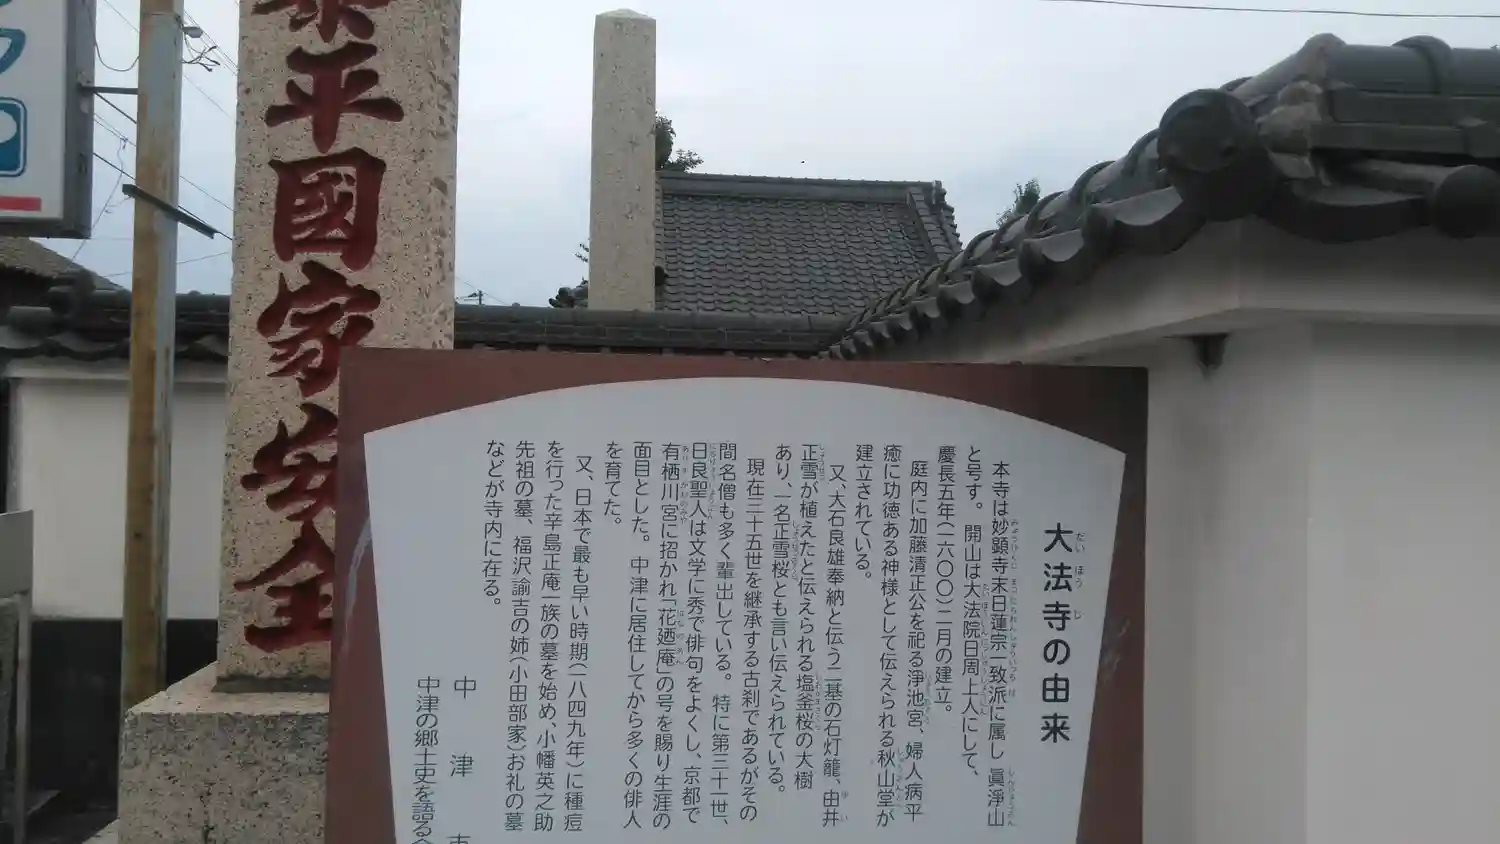 泰平國家安全
大法寺の由来
だいほうじ
本寺は妙顕寺末日蓮宗一致派に属し 眞淨山
と号す。開山は大法院日周上人にして、
慶長五年(一六〇〇)二月の建立。
庭内に加藤清正公を祀る淨池宮、婦人病平
癒に功徳ある神様として伝えられる秋山堂が
建立されている。
又、大石良雄奉納と伝う二基の石灯籠、由井
正雪が植えたと伝えられる塩釜桜の大樹
あり、一名正雪桜とも言い伝えられている。
現在三十五世を継承する古刹であるがその
間名僧も多く輩出している。特に第三十一世、
日良聖人は文学に秀で俳句をよくし、京都で
有栖川宮に招かれ「花廼庵」の号を賜り生涯の
面目とした。中津に居住してから多くの俳人
を育てた。
又、日本で最も早い時期(一八四九年)に種痘
を行った辛島正庵一族の墓を始め、小幡英之助
先祖の墓、福沢諭吉の姉(小田部家)お礼の墓
などが寺内に在る。
中津市
中津の郷土史を語る会